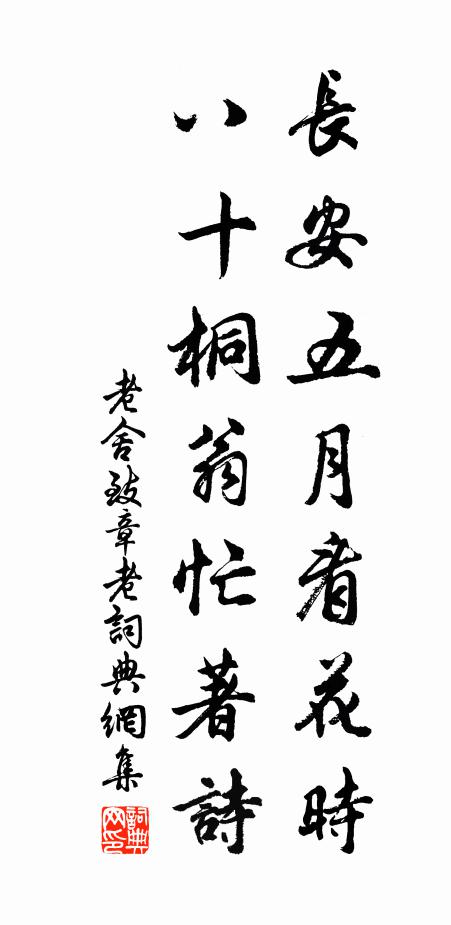 長安五月看花時
八十桐翁忙著詩
老舍致章老詞典網集
詞典网印